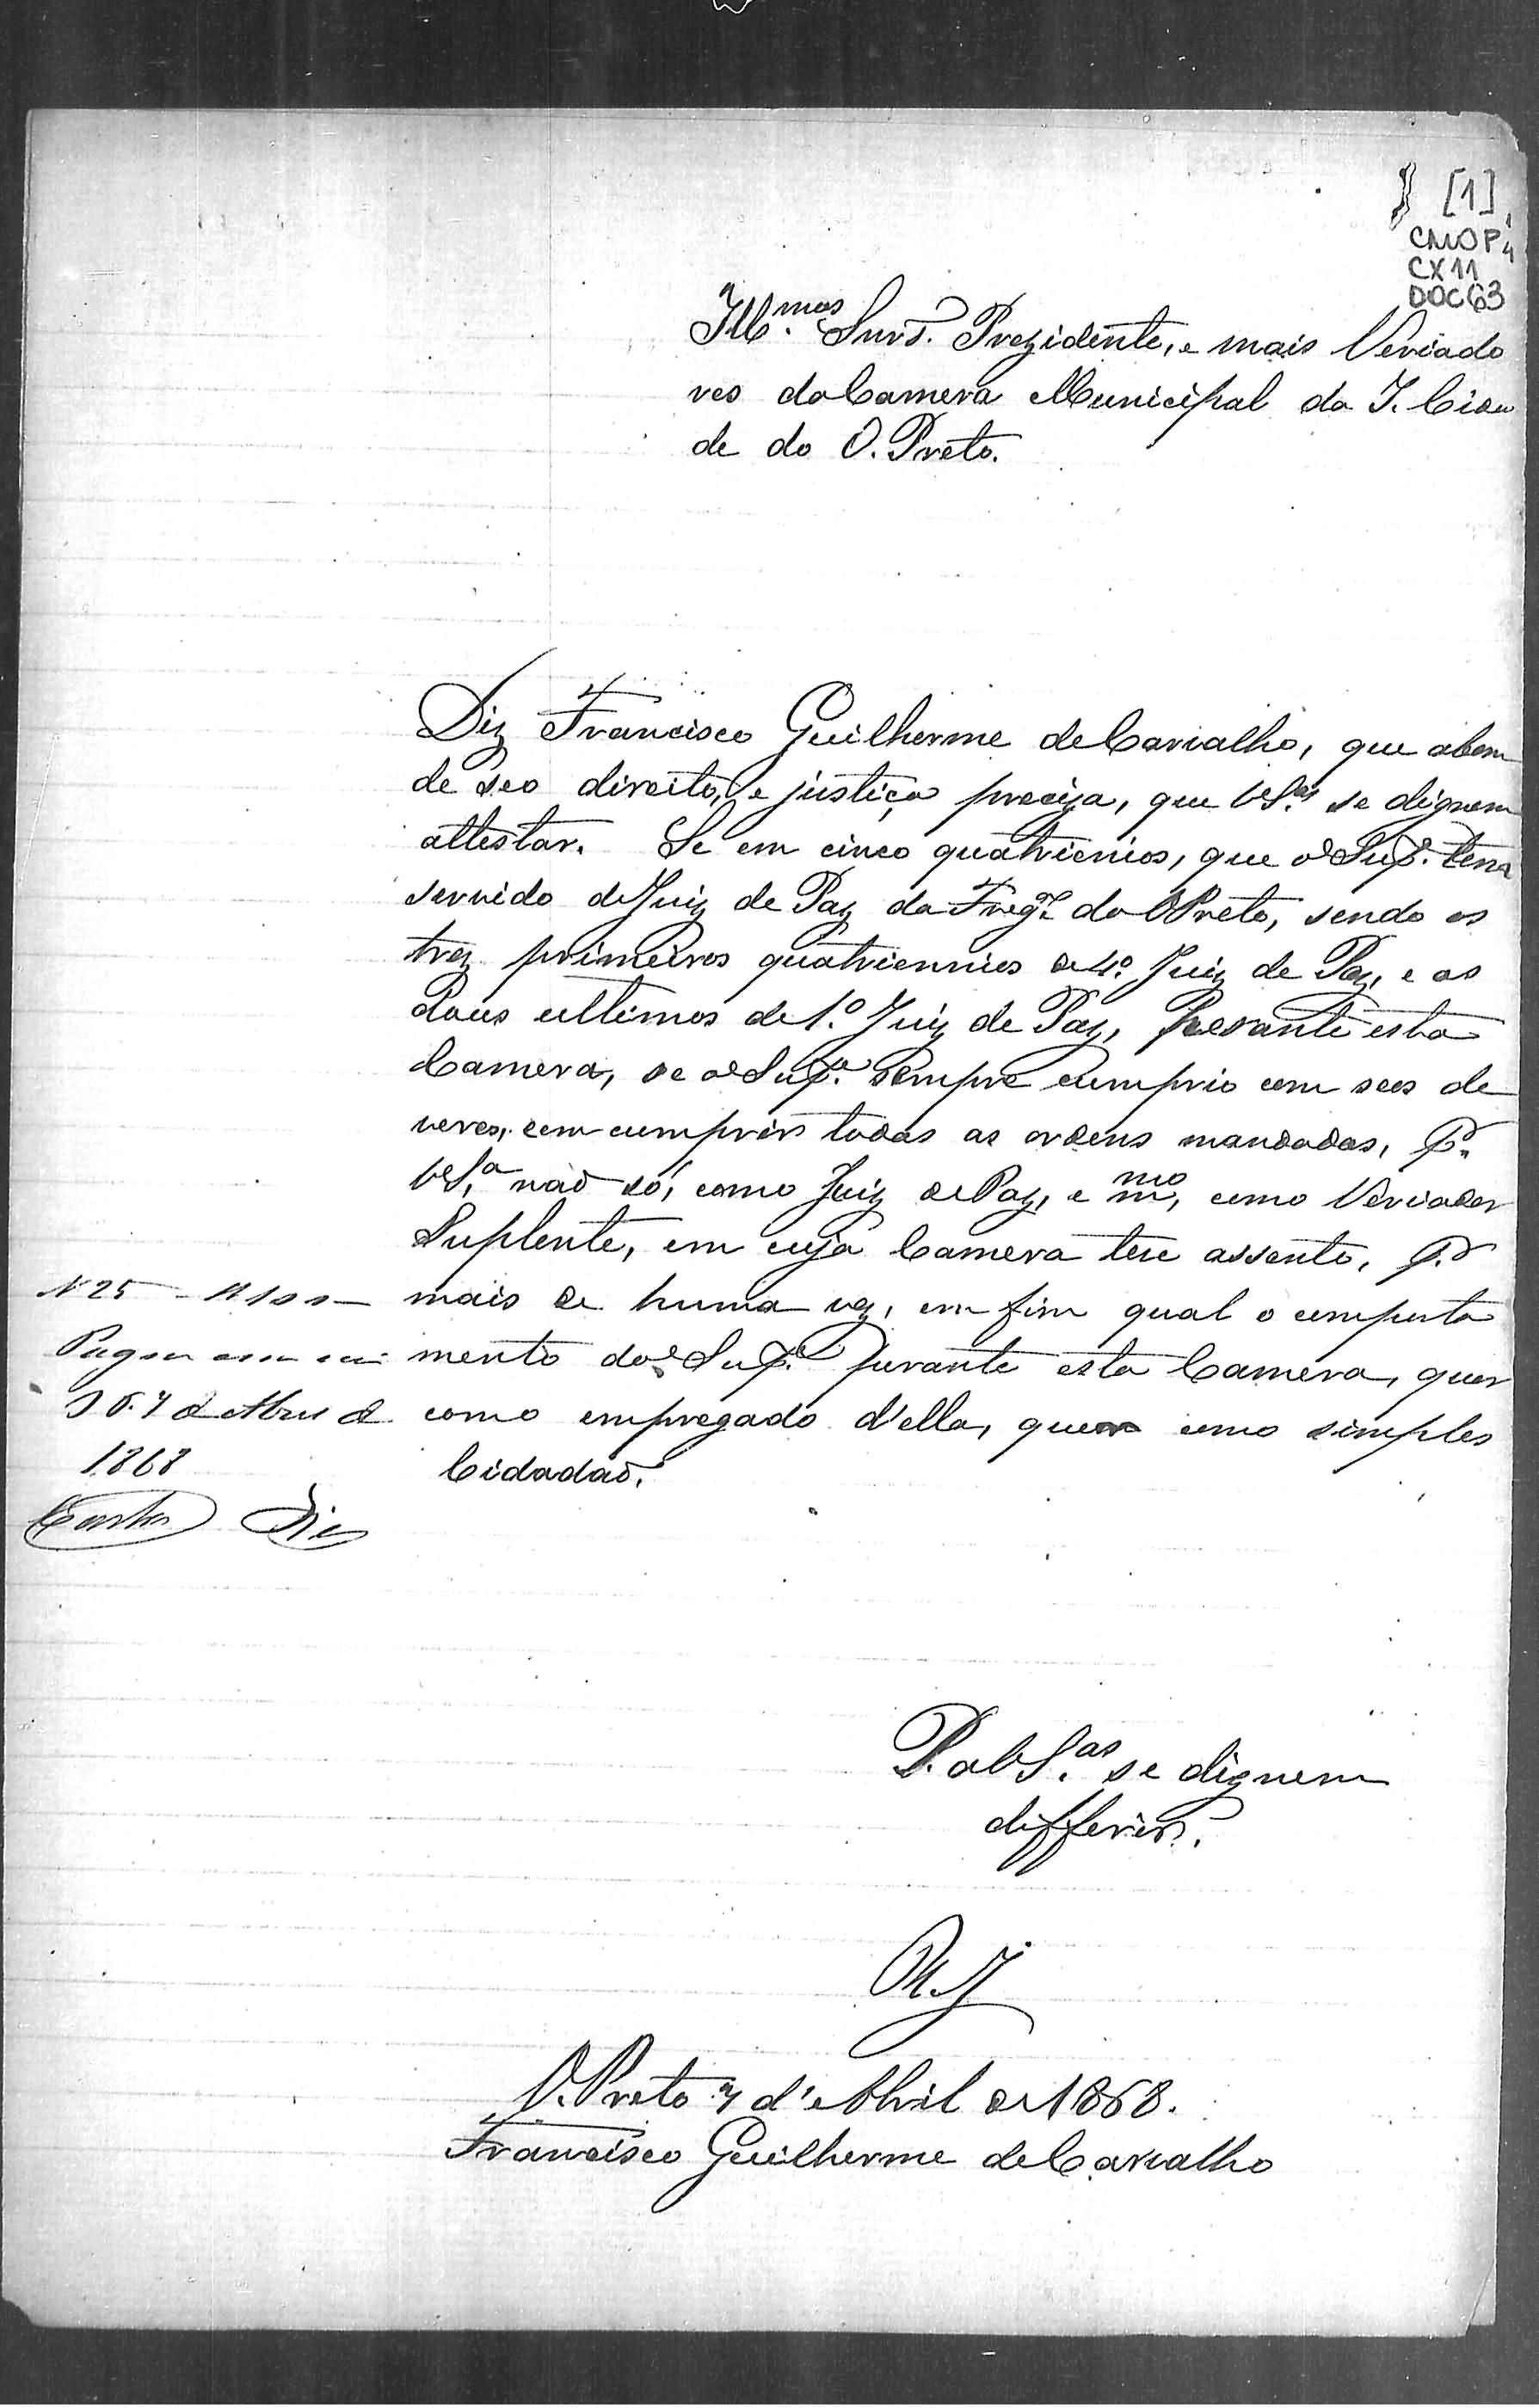 [1]
CMOP
CX11
DOC63
Ill.mos Snrs. Prezidente, e mais Veriado
res da Camera Municipal da I. Cida
de do O. Preto.
Diz Francisco Guilherme de Carvalho, que abem
de seo direito, e justiça preciza, que VS.as se dignem
attestar. Se em cinco quatriennios, que o Sup.e tem
servido de Juiz de Paz da Freg.a do OPreto, sendo os
trez primeiros quatriennios de 4.o Juiz de Paz, e os
dous ultimos de 1.o Juiz de Paz, Perante esta
Camera, se o Sup.e sempre cumprio com seos de
veres, em cumprir todas as ordens mandadas, P.r
VS.a não só, como Juiz de Paz, e mmo, como Veriador
Suplente, em cuja Camera teve assento, P.r
mais de huma vez, em fim qual o comporta
mento do Sup.e perante esta Camera, quer
como empregado d'ella, quer como simples
Cidadão.
N 25
O P. 7 de Abril de
1868
Costa Dias
P. a VS.as se dignem
differir.
R. M.
O. Preto 7 d'Abril de 1868.
Francisco Guilherme de Carvalho